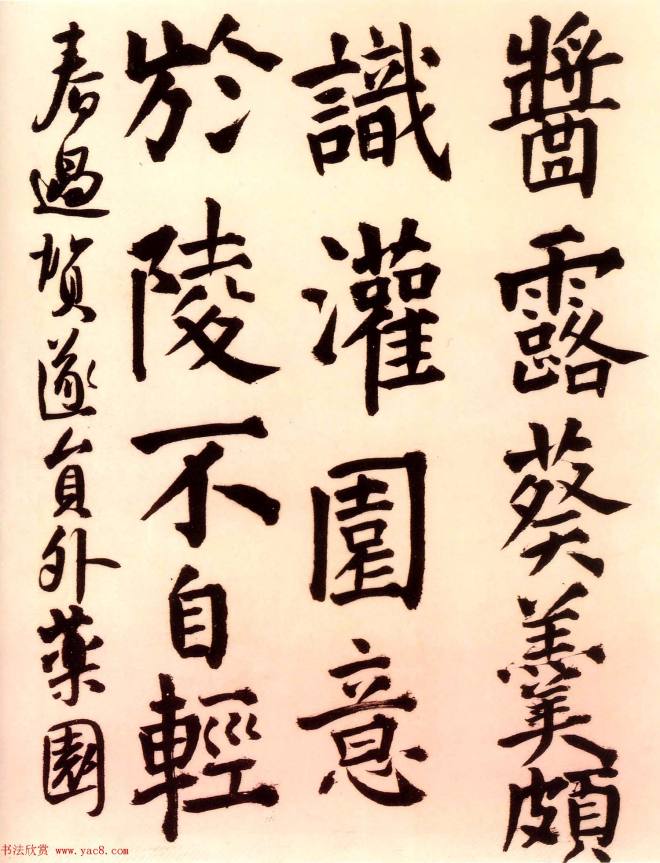 醬露葵羹頗
識灌園意
於陵不自輕
春過賀遂員外藥園
书法欣赏 www.yac8.com